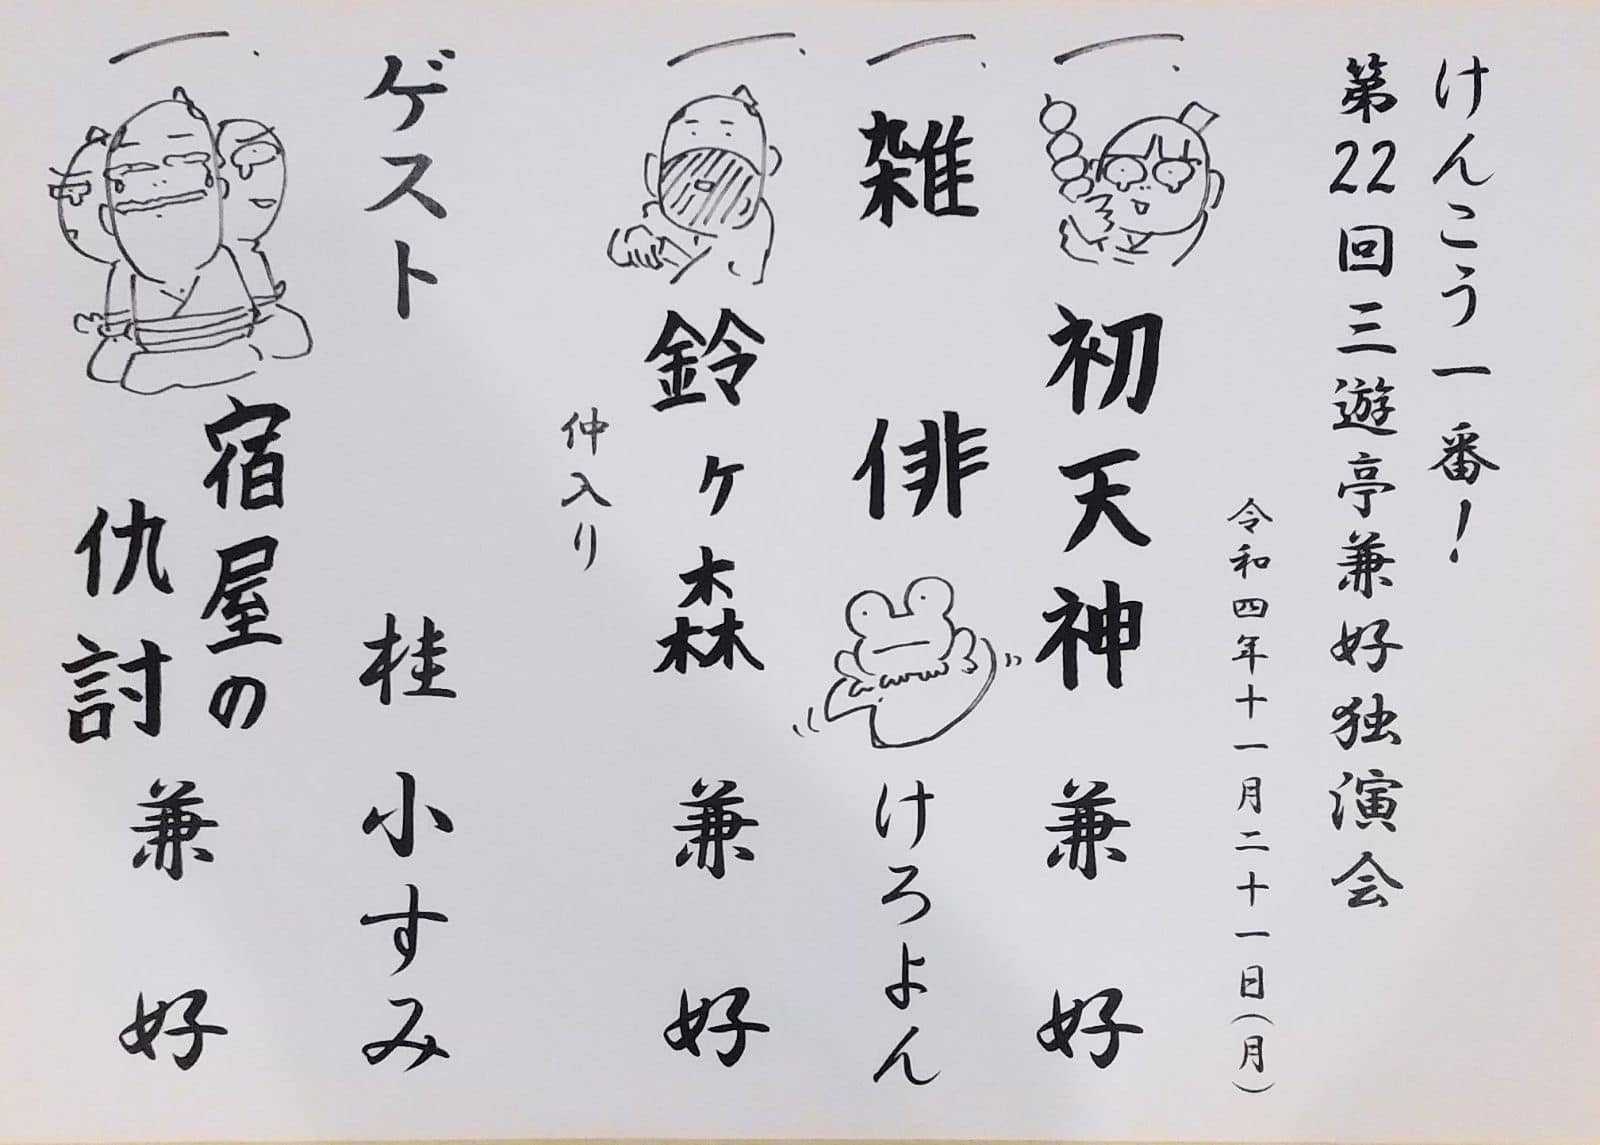 けんこう一番!
第22回三遊亭兼好独演会
令和四年十一月二十一日(月)
一、初天神 兼好
一、雑俳 けろよん
一、鈴ヶ森 兼好
仲入り
ゲスト 桂小すみ
一、宿屋の
仇討 兼好